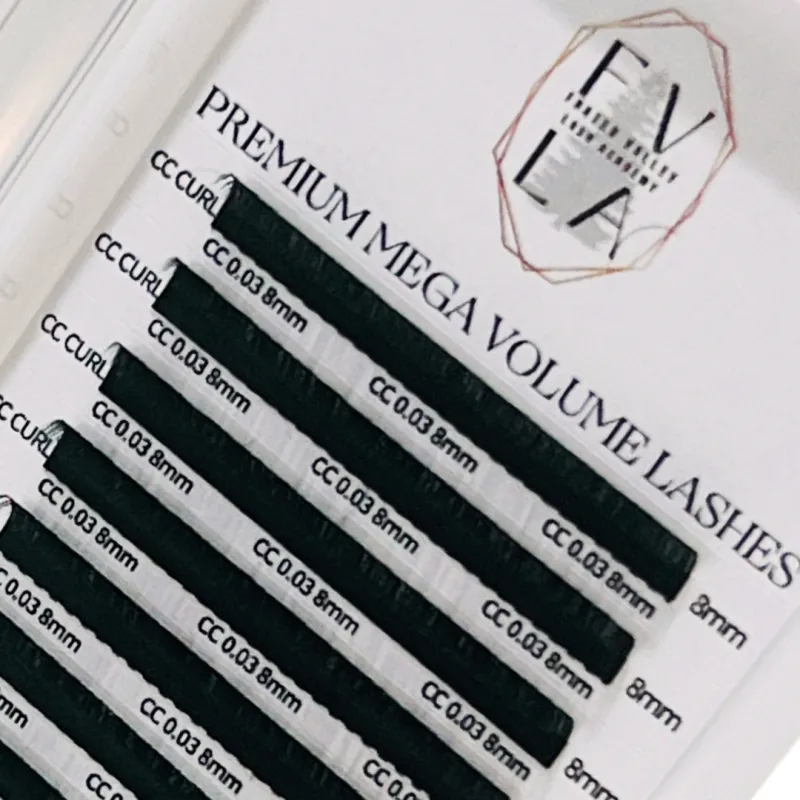 F V
FRASER VALLEY
LASH ACADEMY
L A
PREMIUM MEGA VOLUME LASHES
CC CURL
8mm
CC 0.03 8mm CC 0.03 8mm CC 0.03 8mm
CC CURL
8mm
CC 0.03 8mm CC 0.03 8mm CC 0.03 8mm
CC CURL
8mm
CC 0.03 8mm CC 0.03 8mm CC 0.03 8mm
CC CURL
CC 0.03 8mm CC 0.03 8mm CC 0.
CC 0.03 8mm CC 0.03 8mm
mm CC